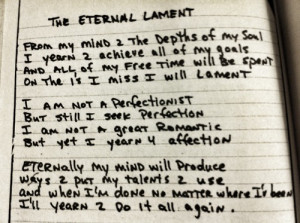 THE ETERNAL LAMENT
FROM MY MIND 2 THE DEPTHS OF MY SOUL
I YEARN 2 ACHIEVE ALL OF MY GOALS
AND ALL OF MY FREE TIME WILL BE SPENT
ON THE 1S I MISS I WILL LAMENT
I AM NOT A PERFECTIONIST
BUT STILL I SEEK PERFECTION
I AM NOT A GREAT ROMANTIC
BUT YET I YEARN 4 AFFECTION
ETERNALLY MY MIND WILL PRODUCE
WAYS 2 PUT MY TALENTS 2 USE
AND WHEN I'M DONE NO MATTER WHERE I'V BEEN
I'LL YEARN 2 DO IT ALL AGAIN.